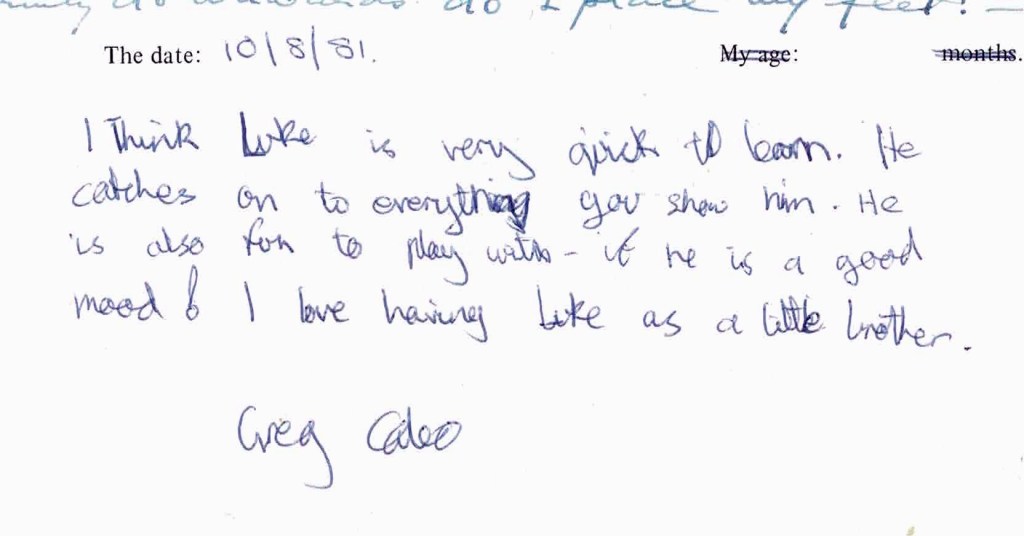 do I place my feet! -
The date: 10/8/81. My age: months.
I think Luke is very quick to learn. He
catches on to everything you show him. He
is also fun to play with - if he is a good
mood! I love having Luke as a little brother.
Greg Caleo